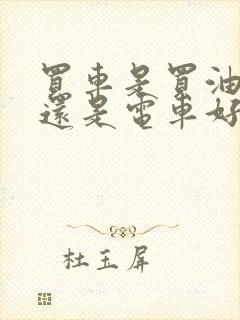 買車是買油
還是電車好
杜玉屏